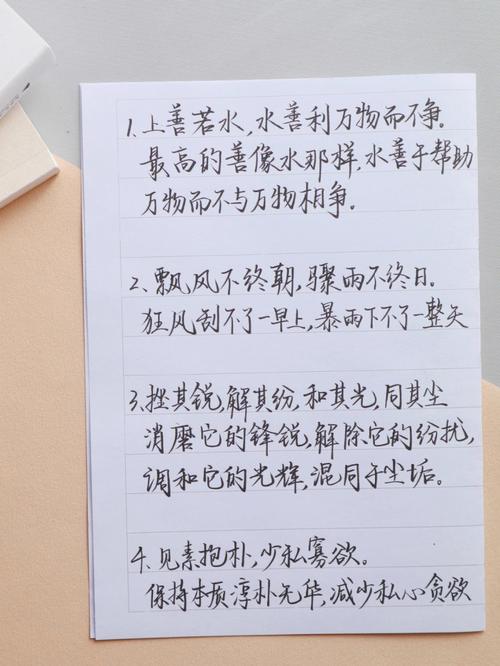 1.上善若水,水善利万物而不争.
最高的善像水那样,水善于帮助
万物而不与万物相争。
2、飘风不终朝,骤雨不终日.
狂风刮不了一早上,暴雨下不了一整天
3.挫其锐,解其纷,和其光,同其尘
消磨它的锋锐,解除它的纷扰,
调和它的光辉,混同于尘垢。
4.见素抱朴,少私寡欲。
保持本质淳朴无华,减少私心贪欲